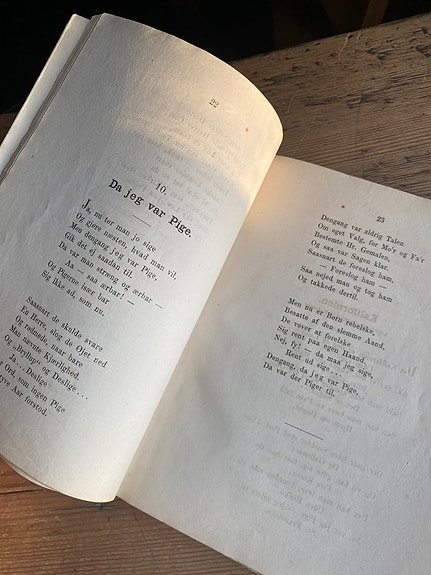 22
10.
Da jeg var Pige.
Ja, nu tør man jo sige
Og gjøre næsten, hvad man vil,
Men dengang jeg var Pige,
Gik det ej saadan til.
Da var man streng og ærbar —
Aa — saa ærbar! —
Og Pigerne især bar
Sig ikke ad, som nu.
Saasnart de skulde svare
En Herre, slog de Øjet ned
Og rødmede, naar bare
Man nævnte Kjærlighed.
Og »Bryllup og Deslige . . .
Ja . . . Deslige
Ord, som ingen Pige
Aar forstod.
23
Dengang var aldrig Talen
Om eget Valg, for Mo'r og Fa'r
Bestemte Hr. Gemalen,
Og saa var Sagen klar.
Saasnart de foreslog ham —
— Foreslog ham —
Saa nejed man og tog ham
Og takkede dertil.
Men nu er Børn rebelske,
Besatte af den slemme Aand,
De vover at forelske
Sig rent paa egen Haand,
Nej, fy! — da maa jeg sige,
Rent ud sige . . .
Dengang, da jeg var Pige,
Da var der Piger til.